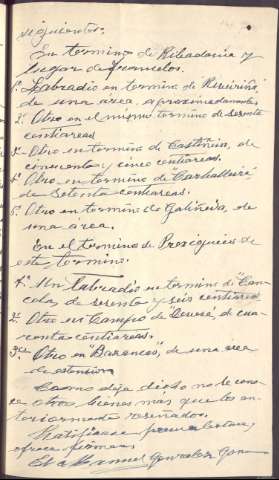 siguientes:
En termino de Ribadavia y
lugar de Francelos.
1º Labradio en termino de
de una area, aproximadamente
2º Otro en el mismo termino de sesenta
centiareas
3º Otro en termino de "Castiñeira, de
cincuenta y cinco centiareas.
4º Otro en termino de "Carballeira"
de setenta centiareas.
5º Otro en termino de Galiñeira, de
una area.
En el termino de Prexigueiro de
este termino.
1º Un labradio en termino de Can
cela, de sesenta y seis centiareas
2º Otro en Campo de de cua
renta centiareas.
3º Otro en "Barancos", de una area
de extension
Como deja dicho no le cono
ce otros bienes mas que los an
teriormente reseñados.
Ratificase
ofrece firmar
Manuel Gonzalez